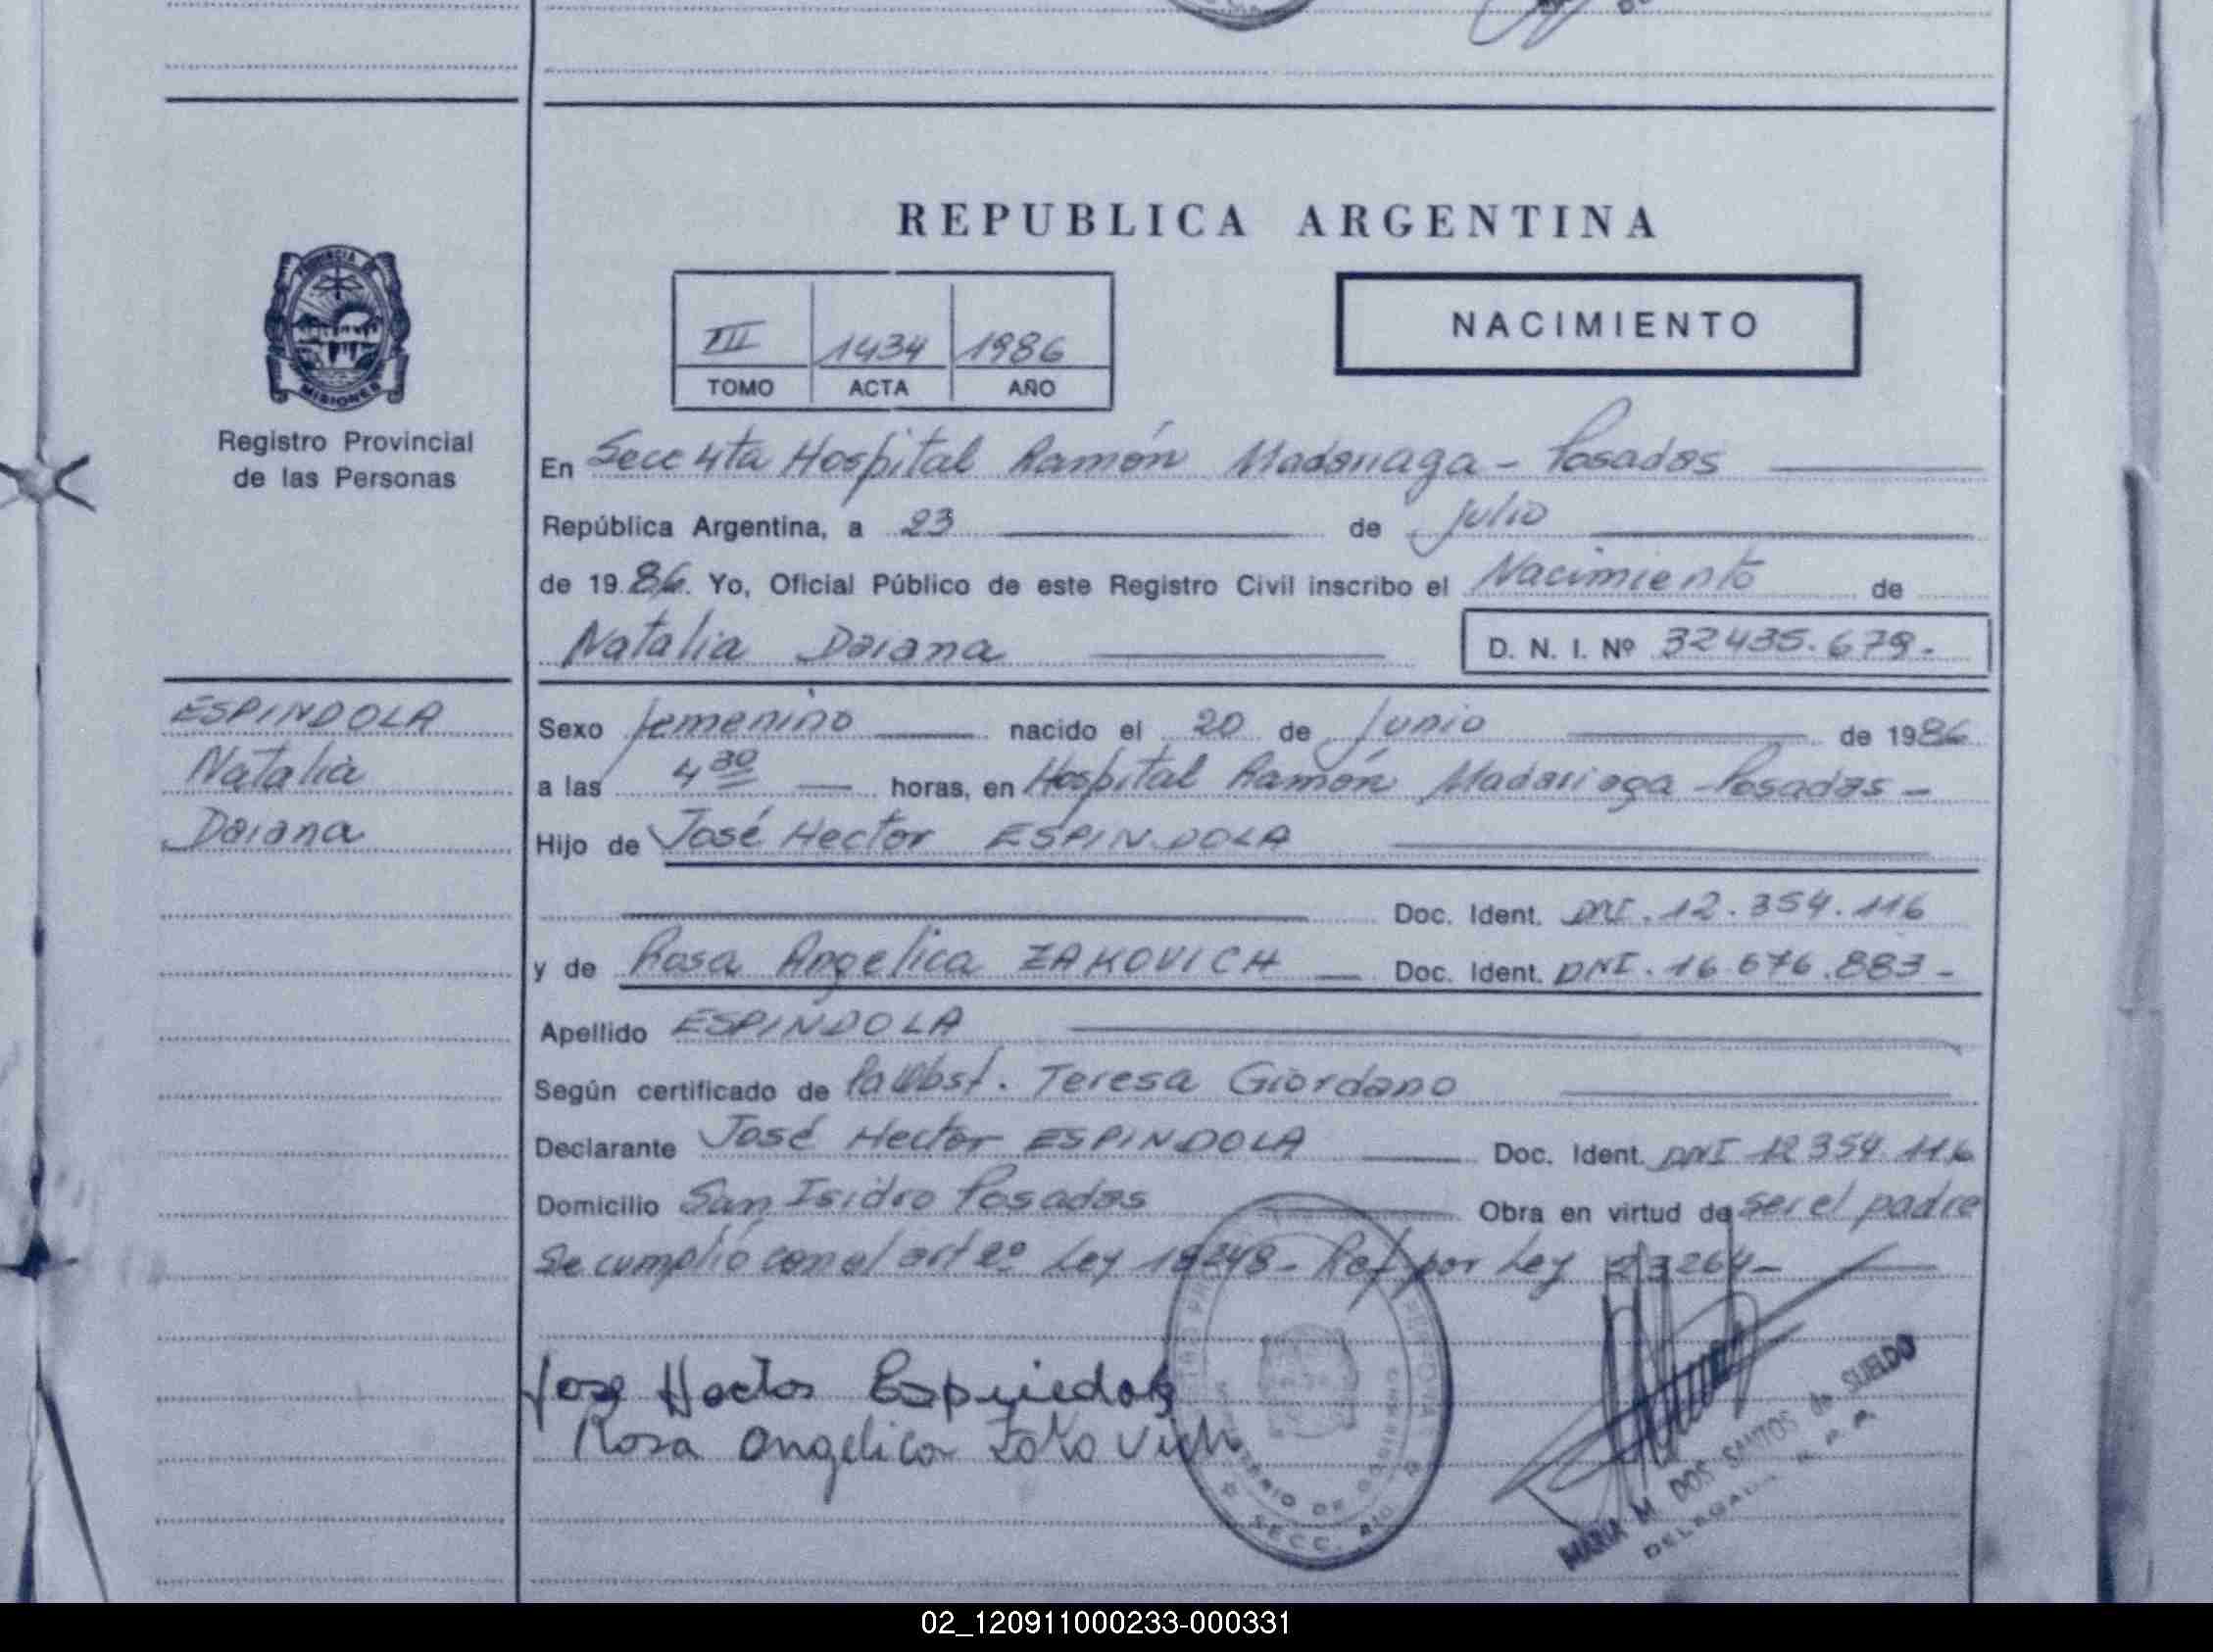 REPUBLICA ARGENTINA
III 1434 1986
TOMO ACTA AÑO
NACIMIENTO
PROVINCIA DE
MISIONES
Registro Provincial
de las Personas
En Secc 4ta Hospital Ramón Madariaga - Posadas
República Argentina, a 23 de Julio
de 1986. Yo, Oficial Público de este Registro Civil inscribo el Nacimiento de
Natalia Daiana D. N. I. Nº 32435.679.-
ESPINDOLA
Natalia
Daiana
Sexo femenino nacido el 20 de Junio de 1986
a las 4 30 horas, en Hospital Ramón Madariaga - Posadas -
Hijo de José Hector ESPINDOLA
Doc. Ident. DNI. 12.354.116
y de Rosa Angelica ZAKOVICH Doc. Ident. DNI. 16.676.883-
Apellido ESPINDOLA
Según certificado de Teresa Giordano
Declarante José Hector ESPINDOLA Doc. Ident. DNI 12354.116
Domicilio San Isidro Posadas Obra en virtud de ser el padre
Se cumplió con el art 2º Ley 18248- Ref por Ley 23264-
Jose Hector Espindola
Rosa Angelica Zakovich
MINISTERIO DE GOBIERNO
SECC.
MARIA M. DOS SANTOS de SUELDO
DELEGADA R. P. P.
02_120911000233-000331